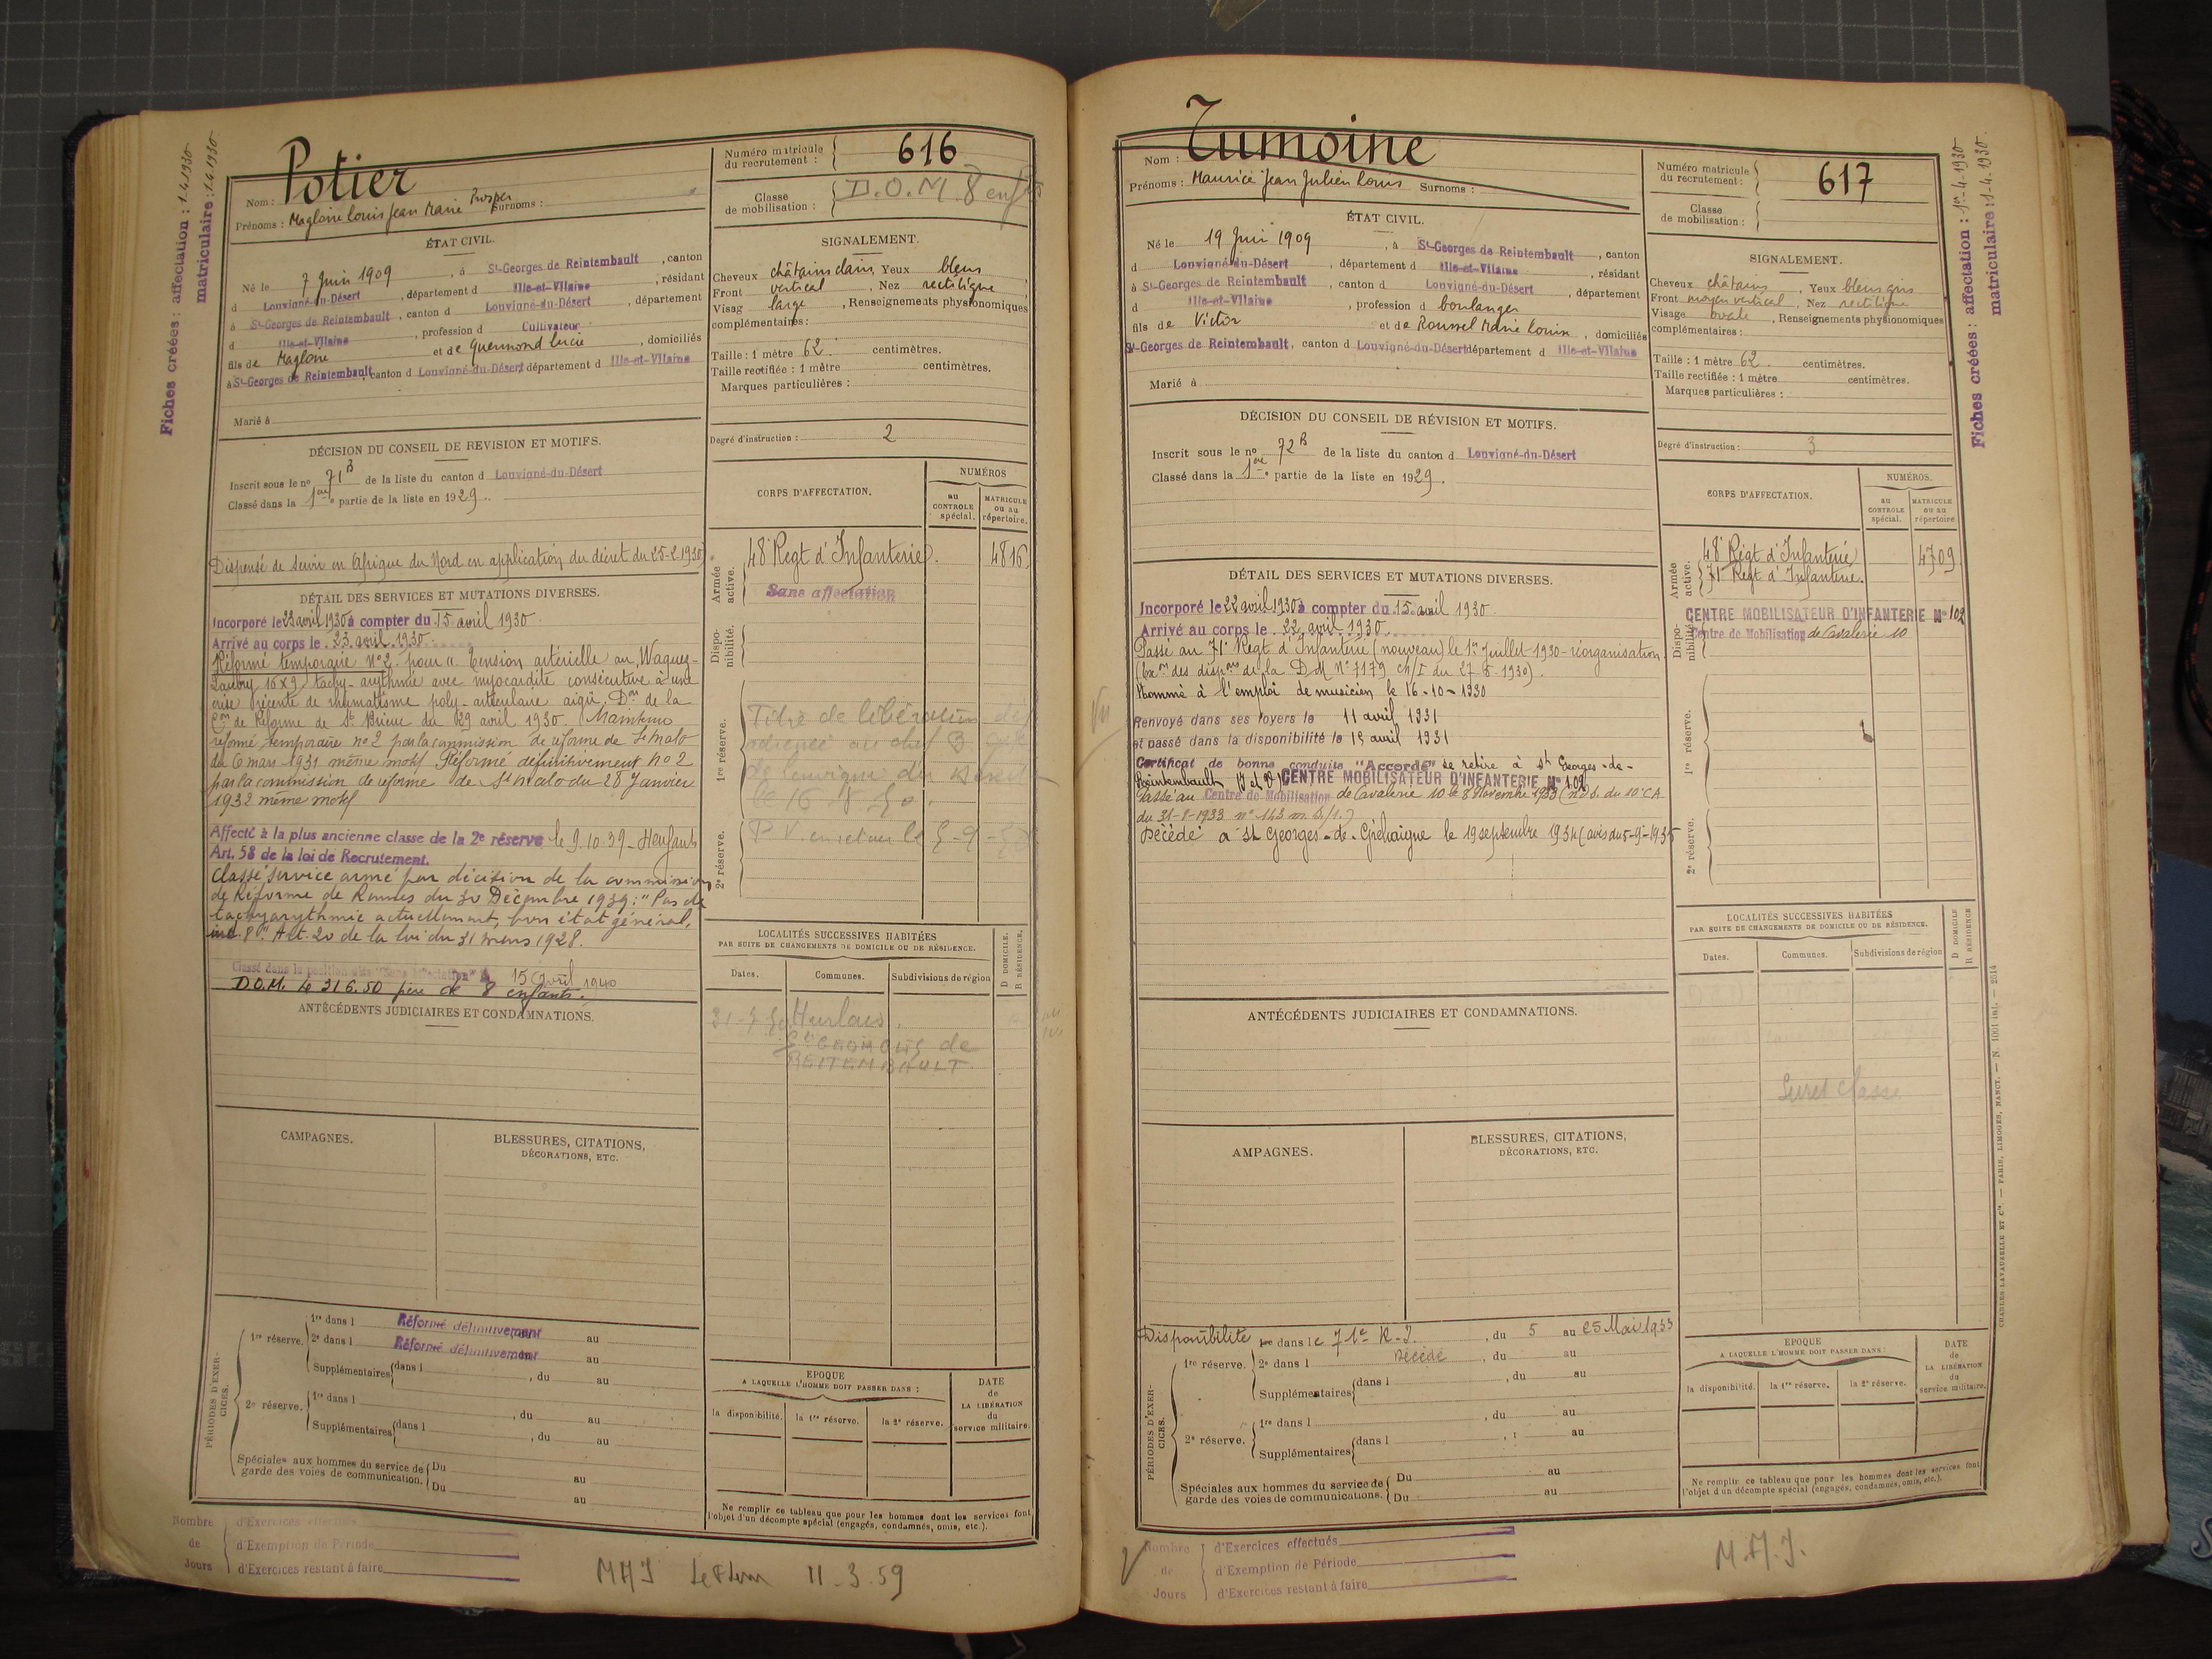 Fiches créées : affectation : 1.4.1930
matriculaire : 1.4.1930
Nom : Potier
Prénoms : Magloire Louis Jean Marie Prosper Surnoms :
Numéro matricule du recrutement : 616
Classe de mobilisation : D.O.M. 8 enfts
ÉTAT CIVIL.
Né le 7 Juin 1909, à St-Georges de Reintembault, canton
d Louvigné-du-Désert, département d Ille-et-Vilaine, résidant
à St-Georges de Reintembault, canton d Louvigné-du-Désert, département
d Ille-et-Vilaine, profession d Cultivateur
fils de Magloire et de Guermond Lucie, domiciliés
à St-Georges de Reintembault, canton d Louvigné-du-Désert département d Ille-et-Vilaine
Marié à
SIGNALEMENT.
Cheveux châtains clairs Yeux bleus
Front vertical, Nez rectiligne,
Visag large, Renseignements physionomiques
complémentaires :
Taille : 1 mètre 62 centimètres.
Taille rectifiée : 1 mètre centimètres.
Marques particulières :
Degré d'instruction : 2
DÉCISION DU CONSEIL DE REVISION ET MOTIFS.
Inscrit sous le no 71 B de la liste du canton d Louvigné-du-Désert
Classé dans la 1ere partie de la liste en 1929.
Dispensé de servir en Afrique du Nord en application du décret du 25-2-1930
CORPS D'AFFECTATION.
NUMÉROS
au CONTROLE spécial.
MATRICULE ou au répertoire.
Armée active.
48e Regt d'Infanterie. 4816
Sans affectation
Disponibilité.
1re réserve.
Titre de libération
adressé au chef B.
de Louvigné du Désert
2e réserve.
P.V. en retour le
DÉTAIL DES SERVICES ET MUTATIONS DIVERSES.
Incorporé le 23 avril 1930 à compter du 15 avril 1930.
Arrivé au corps le 23 avril 1930.
Réformé temporaire n°2 pour " tension artérielle au Waquez-
Laubry 16x9, tachy-arythmie avec myocardite consécutive à une
crise récente de rhumatisme poly-articulaire aigü. Don de la
Com de Réforme de St Brieuc du 29 avril 1930. Maintenu
réformé temporaire n°2 par la commission de réforme de St Malo
du 6 mars 1931 même motif Réformé définitivement n°2
par la commission de réforme de St Malo du 28 Janvier
1932 même motif
Affecté à la plus ancienne classe de la 2e réserve le 9.10.39 - 4 enfants
Art. 58 de la loi de Recrutement.
Classé service armé par décision de la commission
de Réforme de Rennes du 30 Décembre 1939 : "Pas de
tachyarythmie actuellement, bon état général,
Art. 20 de la loi du 31 mars 1928.
Classé dans la position dite "Sans Affectation" le 15 Avril 1940
D.O.M. le 31.6.50 père de 8 enfants.
ANTÉCÉDENTS JUDICIAIRES ET CONDAMNATIONS.
LOCALITÉS SUCCESSIVES HABITÉES
PAR SUITE DE CHANGEMENTS DE DOMICILE OU DE RÉSIDENCE.
Dates. Communes. Subdivisions de région D DOMICILE. R RÉSIDENCE.
St GEORGES de
REITEMBAULT
CAMPAGNES.
BLESSURES, CITATIONS,
DÉCORATIONS, ETC.
PÉRIODES D'EXERCICES.
1re réserve. 1re dans l Réformé définitivement au
2e dans l Réformé définitivement au
Supplémentaires dans l , du au
2e réserve. 1re dans l , du au
Supplémentaires dans l , du au
Spéciales aux hommes du service de garde des voies de communication. Du au
Du au
EPOQUE
A LAQUELLE L'HOMME DOIT PASSER DANS :
la disponibilité. la 1re réserve. la 2e réserve.
DATE de LA LIBÉRATION du service militaire.
Ne remplir ce tableau que pour les hommes dont les services font
l'objet d'un décompte spécial (engagés, condamnés, omis, etc.).
Nombre de Jours
d'Exercices effectués
d'Exemption de Période
d'Exercices restant à faire
11.3.59
Fiches créées : affectation : 1er-4-1930
matriculaire : 1-4-1930
Nom : Tumoine
Prénoms : Maurice Jean Julien Louis Surnoms :
Numéro matricule du recrutement : 617
Classe de mobilisation :
ÉTAT CIVIL.
Né le 19 Juin 1909, à St-Georges de Reintembault, canton
d Louvigné-du-Désert, département d Ille-et-Vilaine, résidant
à St-Georges de Reintembault, canton d Louvigné-du-Désert, département
d Ille-et-Vilaine, profession d boulanger
fils de Victor et de Roussel Marie Louise, domiciliés
St-Georges de Reintembault, canton d Louvigné-du-Désert département d Ille-et-Vilaine
Marié à
SIGNALEMENT.
Cheveux châtains, Yeux bleus gris
Front moyen vertical, Nez rectiligne
Visage ovale, Renseignements physionomiques
complémentaires :
Taille : 1 mètre 62 centimètres.
Taille rectifiée : 1 mètre centimètres.
Marques particulières :
Degré d'instruction : 3
DÉCISION DU CONSEIL DE RÉVISION ET MOTIFS.
Inscrit sous le no 72 B de la liste du canton d Louvigné-du-Désert
Classé dans la 1ere partie de la liste en 1929.
CORPS D'AFFECTATION.
NUMÉROS.
au CONTROLE spécial.
MATRICULE ou au répertoire
Armée active.
48e Régt d'Infanterie 4709
71e Regt d'Infanterie.
Disponibilité.
CENTRE MOBILISATEUR D'INFANTERIE No 102
Centre de Mobilisation de Cavalerie 10
1re réserve.
2e réserve.
DÉTAIL DES SERVICES ET MUTATIONS DIVERSES.
Incorporé le 22 avril 1930 à compter du 15 avril 1930.
Arrivé au corps le 22 avril 1930.
Passé au 71e Regt d'Infanterie (nouveau) le 1er Juillet 1930 - réorganisation
(Exon des dispons de la D.M. n° 7179 du 27-6-1930).
Nommé à l'emploi de musicien le 16-10-1930
Renvoyé dans ses foyers le 11 avril 1931
et passé dans la disponibilité le 15 avril 1931
Certificat de bonne conduite "Accordé" se retire à St Georges-de-
Reintembault CENTRE MOBILISATEUR D'INFANTERIE No 102
Passé au Centre de Mobilisation de Cavalerie 10 le 8 Novembre 1933 (n.d.s. du 10e C.A.
du 31-8-1933 n° 143 m S/1.)
Décédé à St Georges-de-Gréhaigne le 19 septembre 1934 (avis du 5-9-1935
ANTÉCÉDENTS JUDICIAIRES ET CONDAMNATIONS.
LOCALITÉS SUCCESSIVES HABITÉES
PAR SUITE DE CHANGEMENTS DE DOMICILE OU DE RÉSIDENCE.
Dates. Communes. Subdivisions de région D DOMICILE R RÉSIDENCE
AMPAGNES.
BLESSURES, CITATIONS,
DÉCORATIONS, ETC.
PÉRIODES D'EXERCICES.
Disponibilité 1re dans le 71e R.I., du 5 au 25 Mai 1933
1re réserve. 2e dans l Décédé, du au
Supplémentaires dans l , du au
2e réserve. 1re dans l , du au
Supplémentaires dans l au
Spéciales aux hommes du service de garde des voies de communications. Du au
Du au
EPOQUE
A LAQUELLE L'HOMME DOIT PASSER DANS :
la disponibilité. la 1re réserve. la 2e réserve.
DATE de LA LIBÉRATION du service militaire.
Ne remplir ce tableau que pour les hommes dont les services font
l'objet d'un décompte spécial (engagés, condamnés, omis, etc.).
CHARLES-LAVAUZELLE ET Cie. — PARIS, LIMOGES, NANCY. — N. 1001 — 2514
Nombre de Jours
d'Exercices effectués
d'Exemption de Période
d'Exercices restant à faire
M.A.J.